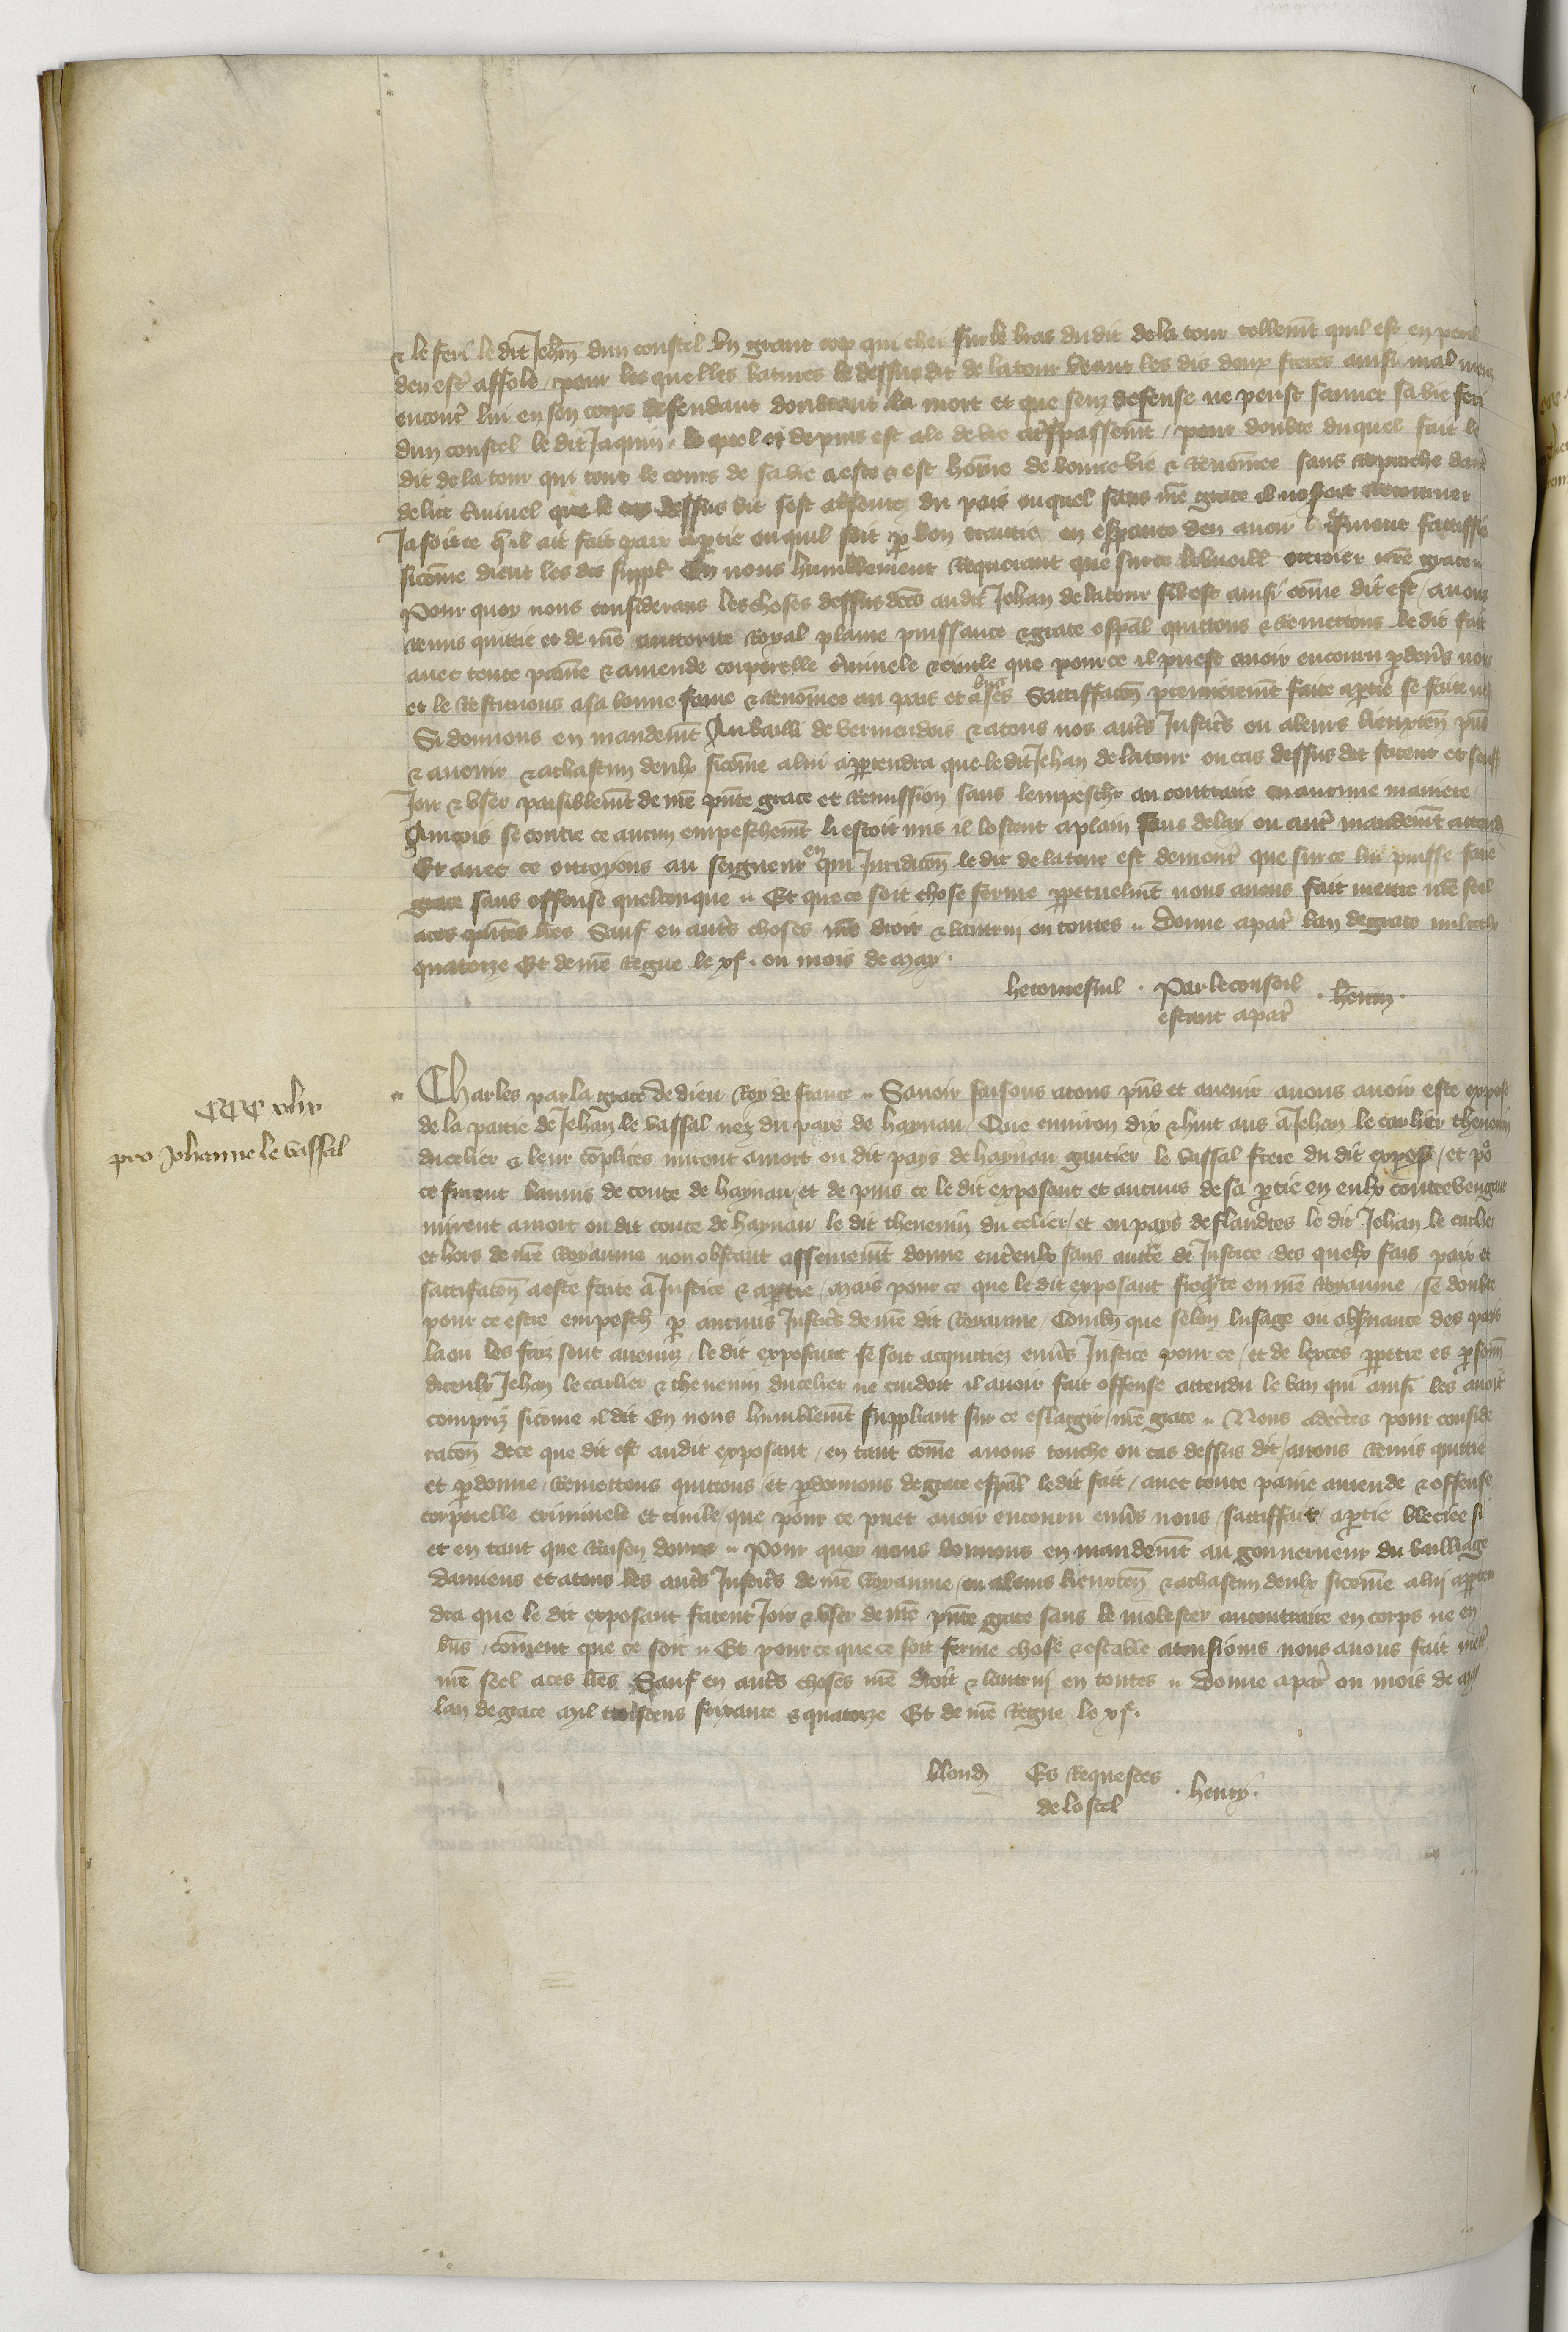 & le feri le dit Jehn̄ dun coustel un grant cop qui chei sur le bras du dit de la tour tellemt̄ quil est en peril
den est̄ affole / pour les quelles batures le dessus dit de la tour veant les dis deux freres ainsi mal
encont̄ lui en son corps defendant doubtant la mort et que senz defense ne peust sauver sa vie feri
dun coustel le dit Jaquin. le quel est depuis est ale de vie a t̄spassemt̄ / pour doubte duquel fait le
dit de la tour qui tout le cours de sa vie a este & est hōme de bonne vie & renōmee sans reproche daut̄
delict
Ja soit ce q̄ il ait fait paix a ptie ou quil soit p bon traitie en espance den avoir
sicōme dient les dis suppl̄ En nous humblement requerant que sur ce li vueill ottroier nr̄e grace
Pour quoy nous considerans les choses dessus dc̄es au dit Jehan de la tour sil est ainsi cōme dit est / avons
remis quittie et de nr̄e auctorite royal plaine puissance & grace espāl quittons & remettons le dit fait
avec toute paine & amende corporelle criminele & civile que pour ce il puest avoir encouru p devs̄ nous
et le restituons a sa bonne fame & renōmee au pais et a ses biens Sattiffacōn premieremt̄ faite a ptie se faite
Si donnons en mandemt̄ Au bailli de vermendois & a tous nos aut̄s Justic̄s ou a leurs lieuxten̄ pn̄s
& avenir & a chascun deulx sicōme a lui appartendra que le dit Jehan de la tour ou cas dessus dit facent et
Joir & user paisiblemt̄ de nr̄e pn̄te grace et remission sans lempesch̄r au contraire en aucune maniere
Aincois se contre ce aucun empeschemt̄ li estoit mis il lostent a plain sens delay ou aut̄ mandemt̄
Et avec ce ottroyons au seigneur en qui Juridicōn le dit de la tour est demour̄ que sur ce lui puisse faire
grace sans offense quelconque .. Et que ce soit chose ferme ppetuelmt̄ nous avons fait mettre nr̄e seel
a ces pn̄tes lr̄es Sauf en aut̄s choses nr̄e droit & lautrui en toutes .. Donne a par̄ lan de grace mil
quatorze Et de nr̄e regne le xj̄. ou mois de may.
hetomesnil . Par le conseil
estant a par̄ . henry.
ccc xliij
pro Johanne le vassal
Charles par la grace de dieu Roy de france .. Savoir faisons a tous pn̄s et avenir / a nous avoir este expose
de la partie de Jehan le vassal nez du pays de haynau / Que environ dix & huit ans a Jehan le carlier thevenin
du celier & leur cōplices mirent a mort ou dit pays de haynau gautier le vassal frere du dit expos̄ / et po̅
ce furent bannis de conte de haynau / et de puis ce le dit exposant et aucuns de sa ptie en eulx contrevengant
mirent a mort ou dit conte de haynau le dit thevenin du celier / et ou pays de flandres le dit Jehan le carlier
et hors de nr̄e royaume non obstant assemremt̄ donne entr̄eulx sans auct̄te de Justice / des quelx fais paix et
sattiffacōn a este faite a Justice & a ptie / Mais pour ce que le dit exposant freq̄nte en nr̄e royaume / se doubte
pour ce estre empesch̄ p aucuns Justic̄s de nr̄e dit royaume / Combn̄ que selon lusage ou obs̄vance des pays
la ou les faiz sont avenuz / le dit exposant se soit acquittiez env̄s Justice pour ce / et de lexces ppetre es psoñ
diceulx Jehan le carlier & thevenin du celier ne cuidoit il avoir fait offense attendu le ban qui ainsi les avoit
compriz sicome il dit En nous humblemt̄ suppliant sur ce eslargir / nr̄e grace .. Nous adec̄tes pour conside
racōn de ce que dit est au dit exposant / en tant cōme a nous touche ou cas dessus dit / avons remis quittie
et pdonne / remettons quittons et pdonnons de grace espāl le dit fait / avec toute paine amende & offense
corporelle criminele et civile / que pour ce puet avoir encouru env̄s nous / sattiffait a ptie bleciee si
et en tant que raison donra .. Pour quoy nous donnons en mandemt̄ au gouverneur du bailliage
damiens et a tous les aut̄s Justic̄s de nr̄e royaume / ou a leurs lieuxten̄ & a chascun deulx sicōme a lui apparten
dra que le dit exposant facent Joir & user de nr̄e pn̄te grace sans le molester au contraire en corps ne en
bn̄s / cōment que ce soit .. Et pour ce que ce soit ferme chose & estable a tousiours nous avons fait mett̄
nr̄e seel a ces lr̄es Sauf en aut̄s choses nr̄e droit & lautrui en toutes .. Donne a par̄ ou mois de may
lan de grace Mil troiscens soixante & quatorze Et de nr̄e regne le xj̄.
blond̄ Es requestes
de lostel . henry.